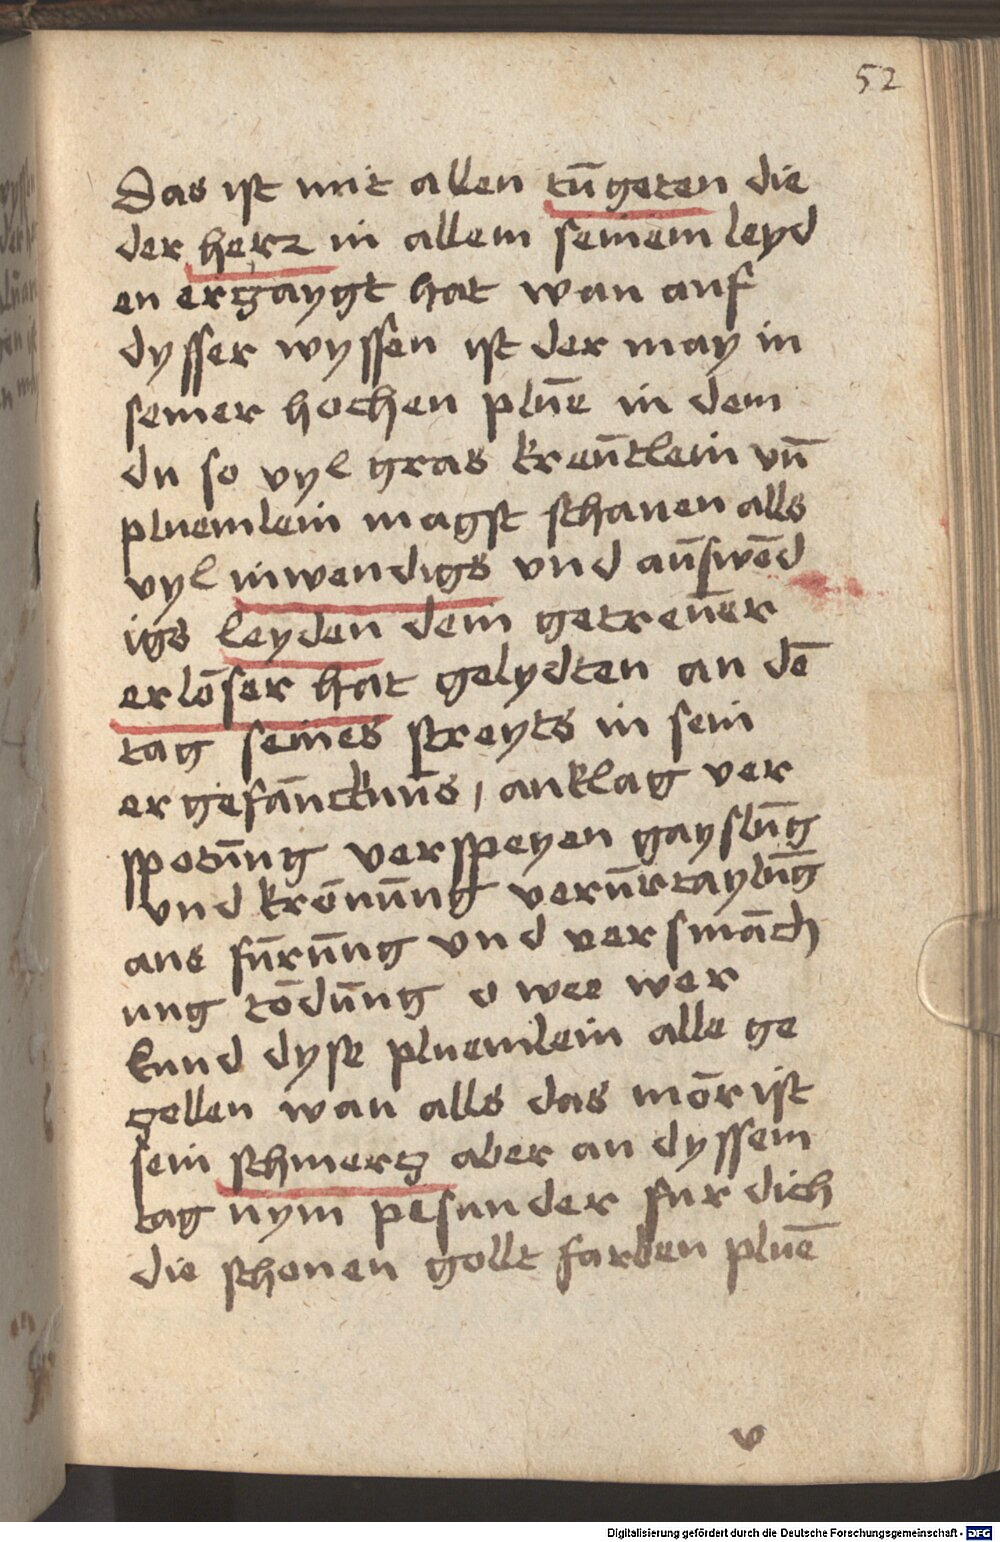 52
Das ist mit allen tūgeten die
der herz in allem seinem leyd
en ergaygt hat wan auf
dysser wyssen ist der may in
seiner hochen plūe in dem
du so vyl gras kreūtlein vn̄
pluemlein magst schauen alls
vyl inwendigs vnd aūswēd
igs leyden dem getreuer
erlōser hat gelydten an dē
tag seines streyts in sein
er gefāncknūs / anklag ver
spotūng verspeyen gayslūng
vnd krōnūng verūrtaylūg
aus fūrūng vnd versmāch
ung tōdūng o wee wer
kund dyse pluemlein alle ge
zellen wan alls das mōr ist
sein schmertz aber an dyssem
tag nym pesunder fur dich
die schonen gollt farben pluē
v
Digitalisierung gefördert durch die Deutsche Forschungsgemeinschaft - DFG